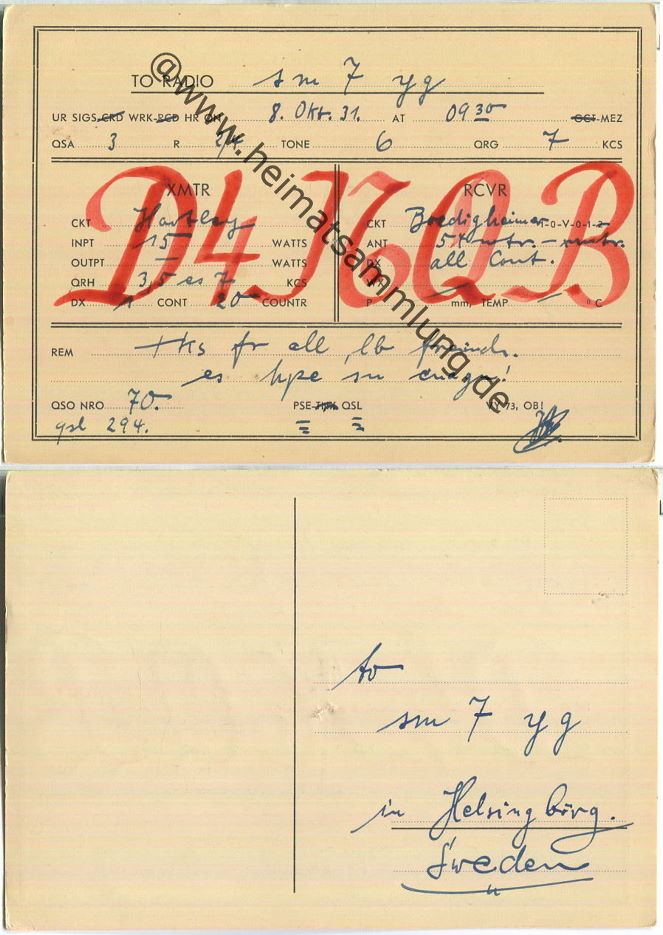 TO RADIO sm 7 yg
UR SIGS CRD WRK-RCD HR ON 8. Okt. 31. AT 09 30 GCT-MEZ
QSA 3 R TONE 6 QRG 7 KCS
D4NQB
XMTR
CKT Hartley
INPT 15 WATTS
OUTPT — WATTS
QRH 3,5 es 7 KCS
DX 1 CONT 20 COUNTR
RCVR
CKT 1-0-V-0-1-2
ANT
DX all Cont.
mm, TEMP ° C
REM tks fr all, lb
es hpe sn
QSO NRO 70. PSE-TNX QSL VY 73, OB!
qsl 294.
@www.heimatsammlung.de
to
sm 7 yg
in Helsingborg.
Sweden